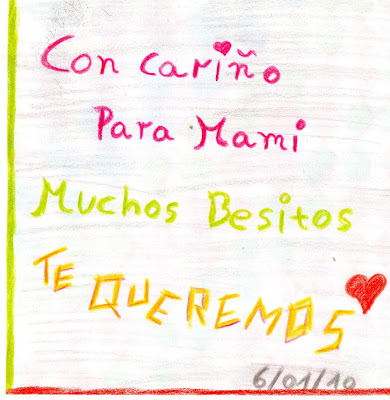 Con cariño
Para Mami
Muchos Besitos
TE QUEREMOS
6/01/10